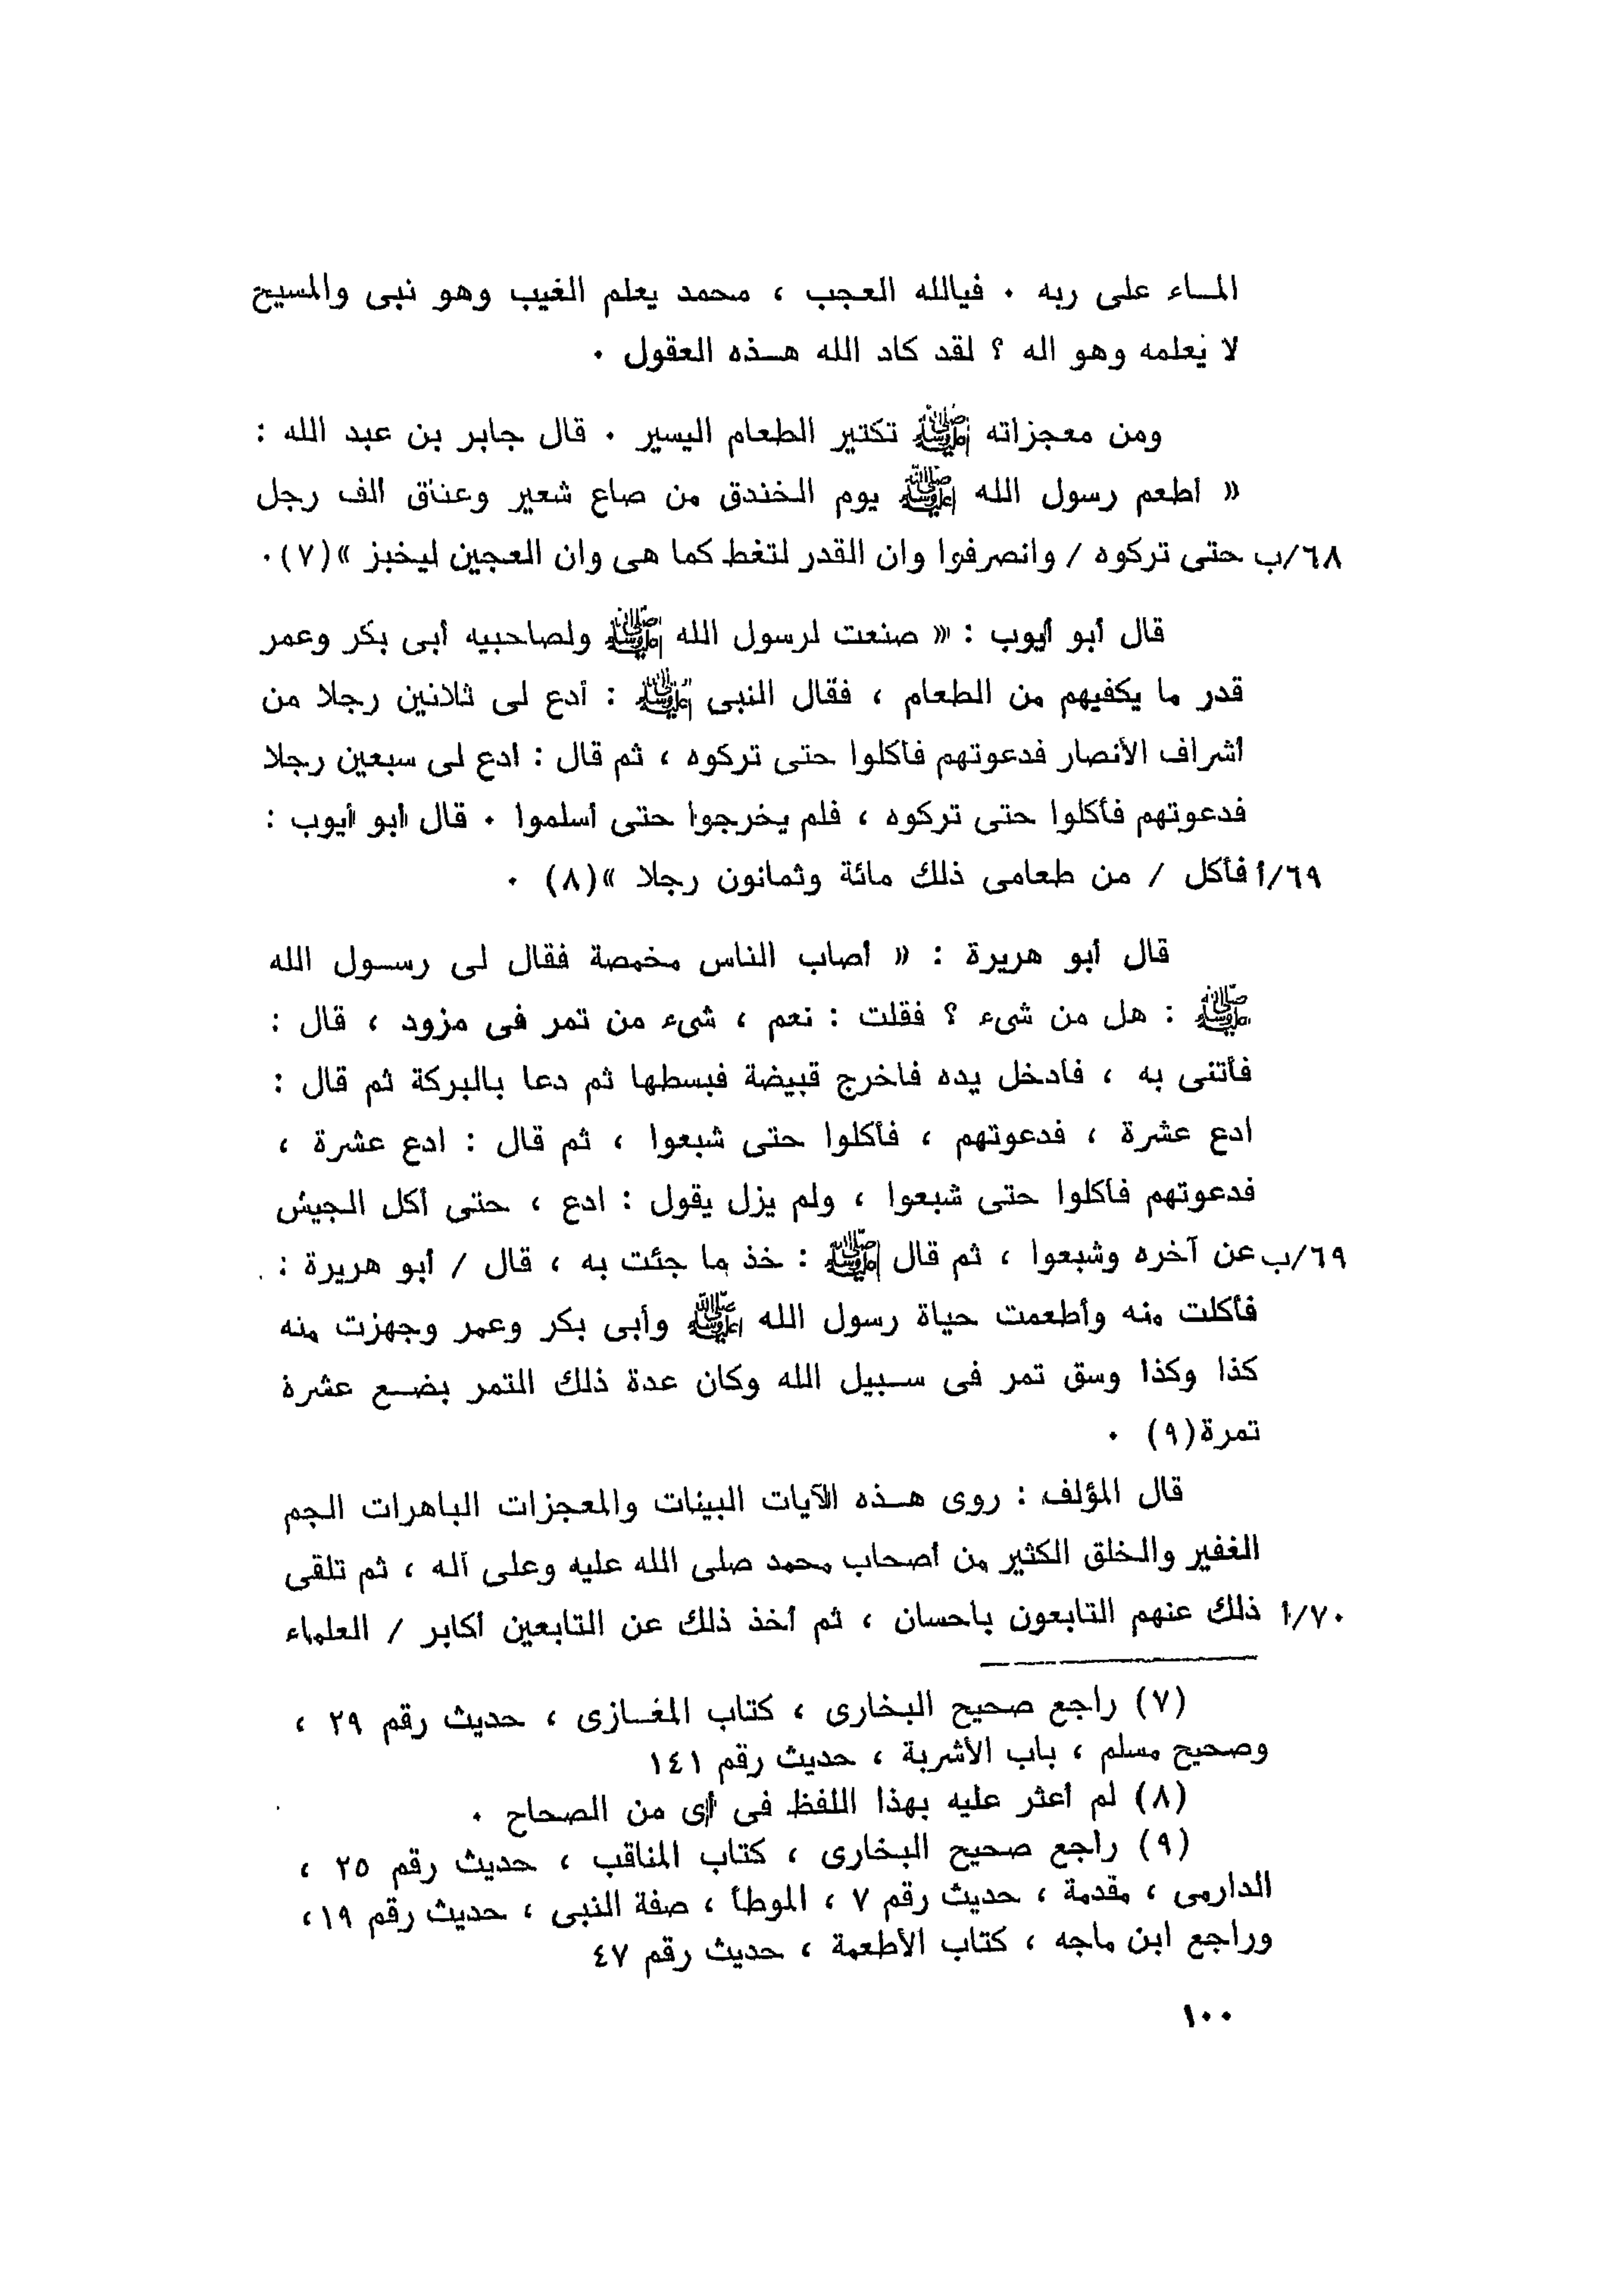 المساء على ربه . فيالله العجب ، محمد يعلم الغيب وهو نبى والمسيح
لا يعلمه وهو اله ؟ لقد كاد الله هـذه العقول .
ومن معجزاته ﷺ تكثير الطعام اليسير . قال جابر بن عبد الله :
« أطعم رسول الله ﷺ يوم الخندق من صاع شعير وعناق الف رجل
٦٨/ب حتى تركوه / وانصرفوا وان القدر لتغط كما هى وان العجين ليخبز »(٧).
قال أبو أيوب : « صنعت لرسول الله ﷺ ولصاحبيه أبى بكر وعمر
قدر ما يكفيهم من الطعام ، فقال النبى ﷺ : أدع لى ثلاثين رجلا من
أشراف الأنصار فدعوتهم فأكلوا حتى تركوه ، ثم قال : ادع لى سبعين رجلا
فدعوتهم فأكلوا حتى تركوه ، فلم يخرجوا حتى أسلموا . قال أبو أيوب :
٦٩/أ فأكل / من طعامى ذلك مائة وثمانون رجلا »(٨) .
قال أبو هريرة : « أصاب الناس مخمصة فقال لى رسـول الله
ﷺ : هل من شىء ؟ فقلت : نعم ، شىء من تمر فى مزود ، قال :
فأتنى به ، فأدخل يده فاخرج قبيضة فبسطها ثم دعا بالبركة ثم قال :
ادع عشرة ، فدعوتهم ، فأكلوا حتى شبعوا ، ثم قال : ادع عشرة ،
فدعوتهم فأكلوا حتى شبعوا ، ولم يزل يقول : ادع ، حتى أكل الجيش
٦٩/ب عن آخره وشبعوا ، ثم قال ﷺ : خذ ما جئت به ، قال / أبو هريرة :
فأكلت منه وأطعمت حياة رسول الله ﷺ وأبى بكر وعمر وجهزت منه
كذا وكذا وسق تمر فى سـبيل الله وكان عدة ذلك التمر بضـع عشرة
تمرة(٩) .
قال المؤلف : روى هـذه الآيات البينات والمعجزات الباهرات الجم
الغفير والخلق الكثير من أصحاب محمد صلى الله عليه وعلى آله ، ثم تلقى
٧٠/أ ذلك عنهم التابعون باحسان ، ثم أخذ ذلك عن التابعين أكابر / العلماء
(٧) راجع صحيح البخارى ، كتاب المغـازى ، حديث رقم ٢٩ ،
وصحيح مسلم ، باب الأشربة ، حديث رقم ١٤١
(٨) لم أعثر عليه بهذا اللفظ فى أى من الصحاح .
(٩) راجع صحيح البخارى ، كتاب المناقب ، حديث رقم ٢٥ ،
الدارمى ، مقدمة ، حديث رقم ٧ ، الموطأ ، صفة النبى ، حديث رقم ١٩ ،
وراجع ابن ماجه ، كتاب الأطعمة ، حديث رقم ٤٧
١٠٠